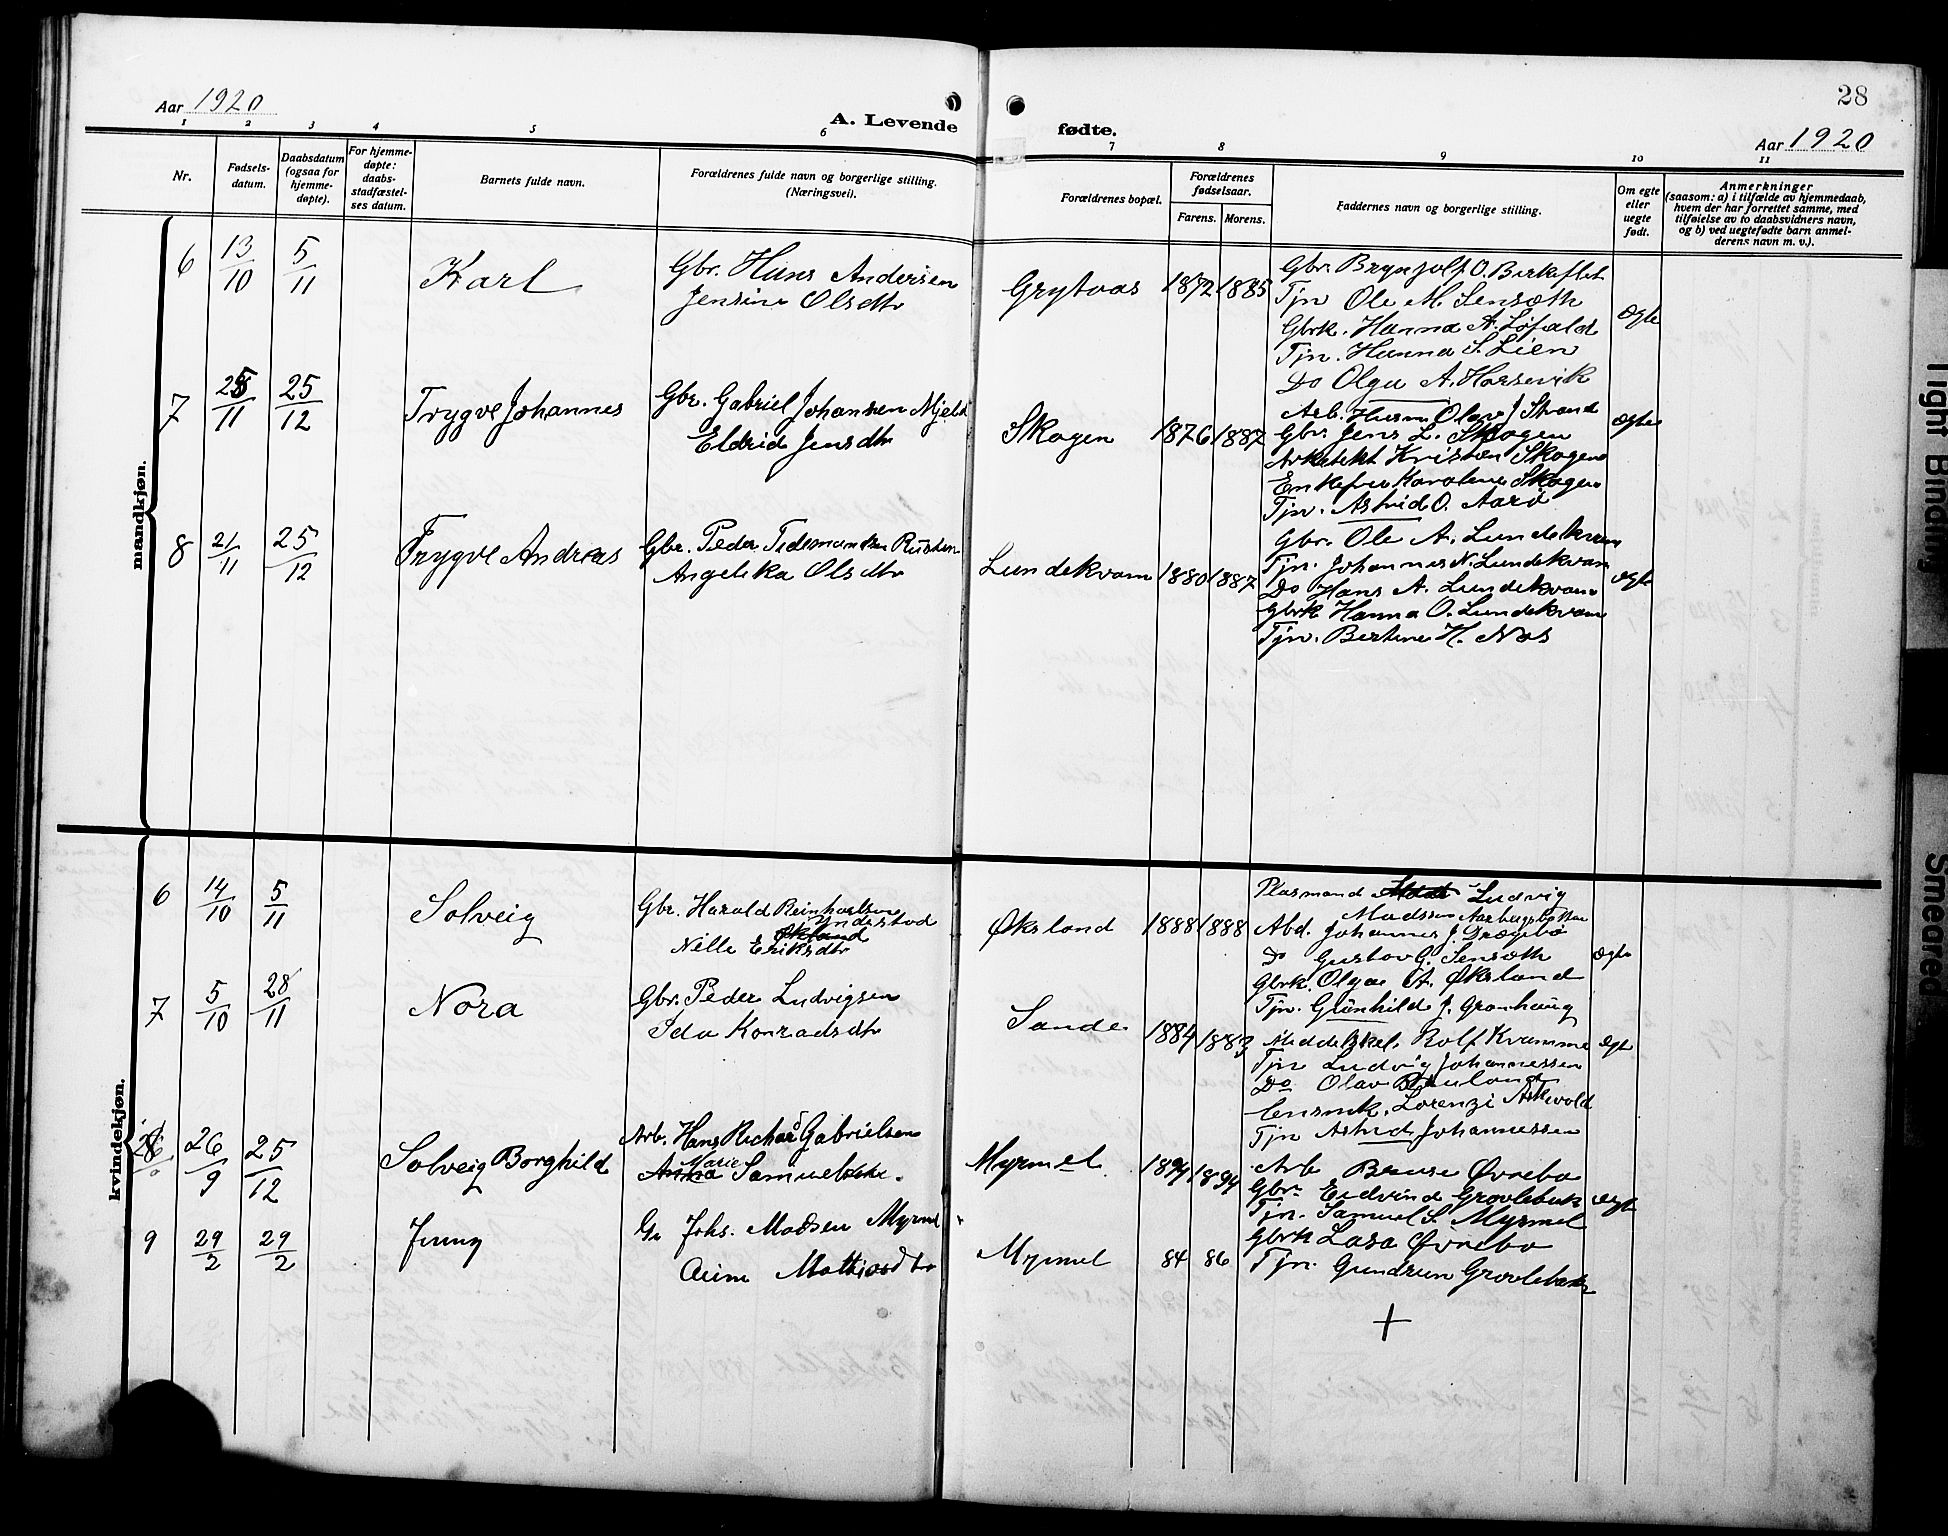 Aar 1920
A. Levende fødte.
28
Aar 1920
1 2 3 4 5 6 7 8 9 10 11
Nr.
Fødsels-
datum.
Daabsdatum
(ogsaa for
hjemme-
døpte).
For hjemme-
døpte:
daabs-
stadfæstel-
ses datum.
Barnets fulde navn.
Forældrenes fulde navn og borgerlige stilling.
(Næringsvei).
Forældrenes bopæl.
Forældrenes
fødselsaar.
Farens. Morens.
Faddernes navn og borgerlige stilling.
Om egte
eller
uegte
født.
Anmerkninger
(saasom: a) i tilfælde av hjemmedaab,
hvem der har forrettet samme, med
tilføielse av to daabsvidners navn,
og b) ved uegtefødte barn anmel-
derens navn m. v.).
mandkjøn.
6 13/10 5/11 Karl
Gbr. Hans Andersen
Jensine Olsdtr
Grytaas 1872 1885
Gbr. Brynjolf O. Birkeflet
Tjn Ole M. Sensæth
Gbrk. Hanna A. Løfald
Tjn. Hanna S. Lien
Do Olga A. Horsevik
ægte
7 25/11 25/12 Trygve Johannes
Gbr. Gabriel Johansen Mjelde
Eldrid Jensdtr
Skogen 1876 1887
Arb. Husm Olav J Strand
Gbr. Jens L. Skogen
Arkitekt Kristen Skogen
Enkefru Karoline Skogen
Tjn. Astrid O. Aarø
ægte
8 21/11 25/12 Trygve Andreas
Gbr. Peder Tidemansen Rusten
Angelika Olsdtr
Lundekvam 1880 1887
Gbr. Ole A. Lundekvam
Tjn. Johannes N. Lundekvam
Do Hans A. Lundekvam
Gbrk Hanna O. Lundekvam
Tjn. Bertine H. Nes
egte
kvindekjøn.
6 14/10 5/11 Solveig
Gbr. Harald Reinholtsen
Indrebø
Økland
Nille Eriksdtr
Øksland 1888 1888
Plasmand Ludvig
Madssen
Abd. Johannes J. Drægebø
Do Gustav G. Sensæth
Gbrk. Olga A. Øksland
Tjn. Gunhild J. Grønhaug
ægte
7 5/10 28/11 Nora
Gbr. Peder Ludvigsen
Ida Konradsdtr
Sande 1884 1883
Rolf Kvamme
Tjn Ludvig Johannessen
Do Olav
Lorenzi Askvold
Tjn Astrid Johannessen
egte
8 26/9 25/12 Solveig Borghild
Arb. Hans Richard Gabrielsen
Marie
Anna Samuelsdtr.
Myrmel 1894 1894
Arb Øvrebø
Gbr Eidvind Grovlebak
Tjn. Samuel S. Myrmel
Gbrk Lasa Øvrebø
Tjn. Gundrun Grovlebak
egte
9 29/2 29/2 Jenny
Johs. Madsen Myrmel
Mathiasdtr
Myrmel 84 86
+
Tight Binding
Smeared